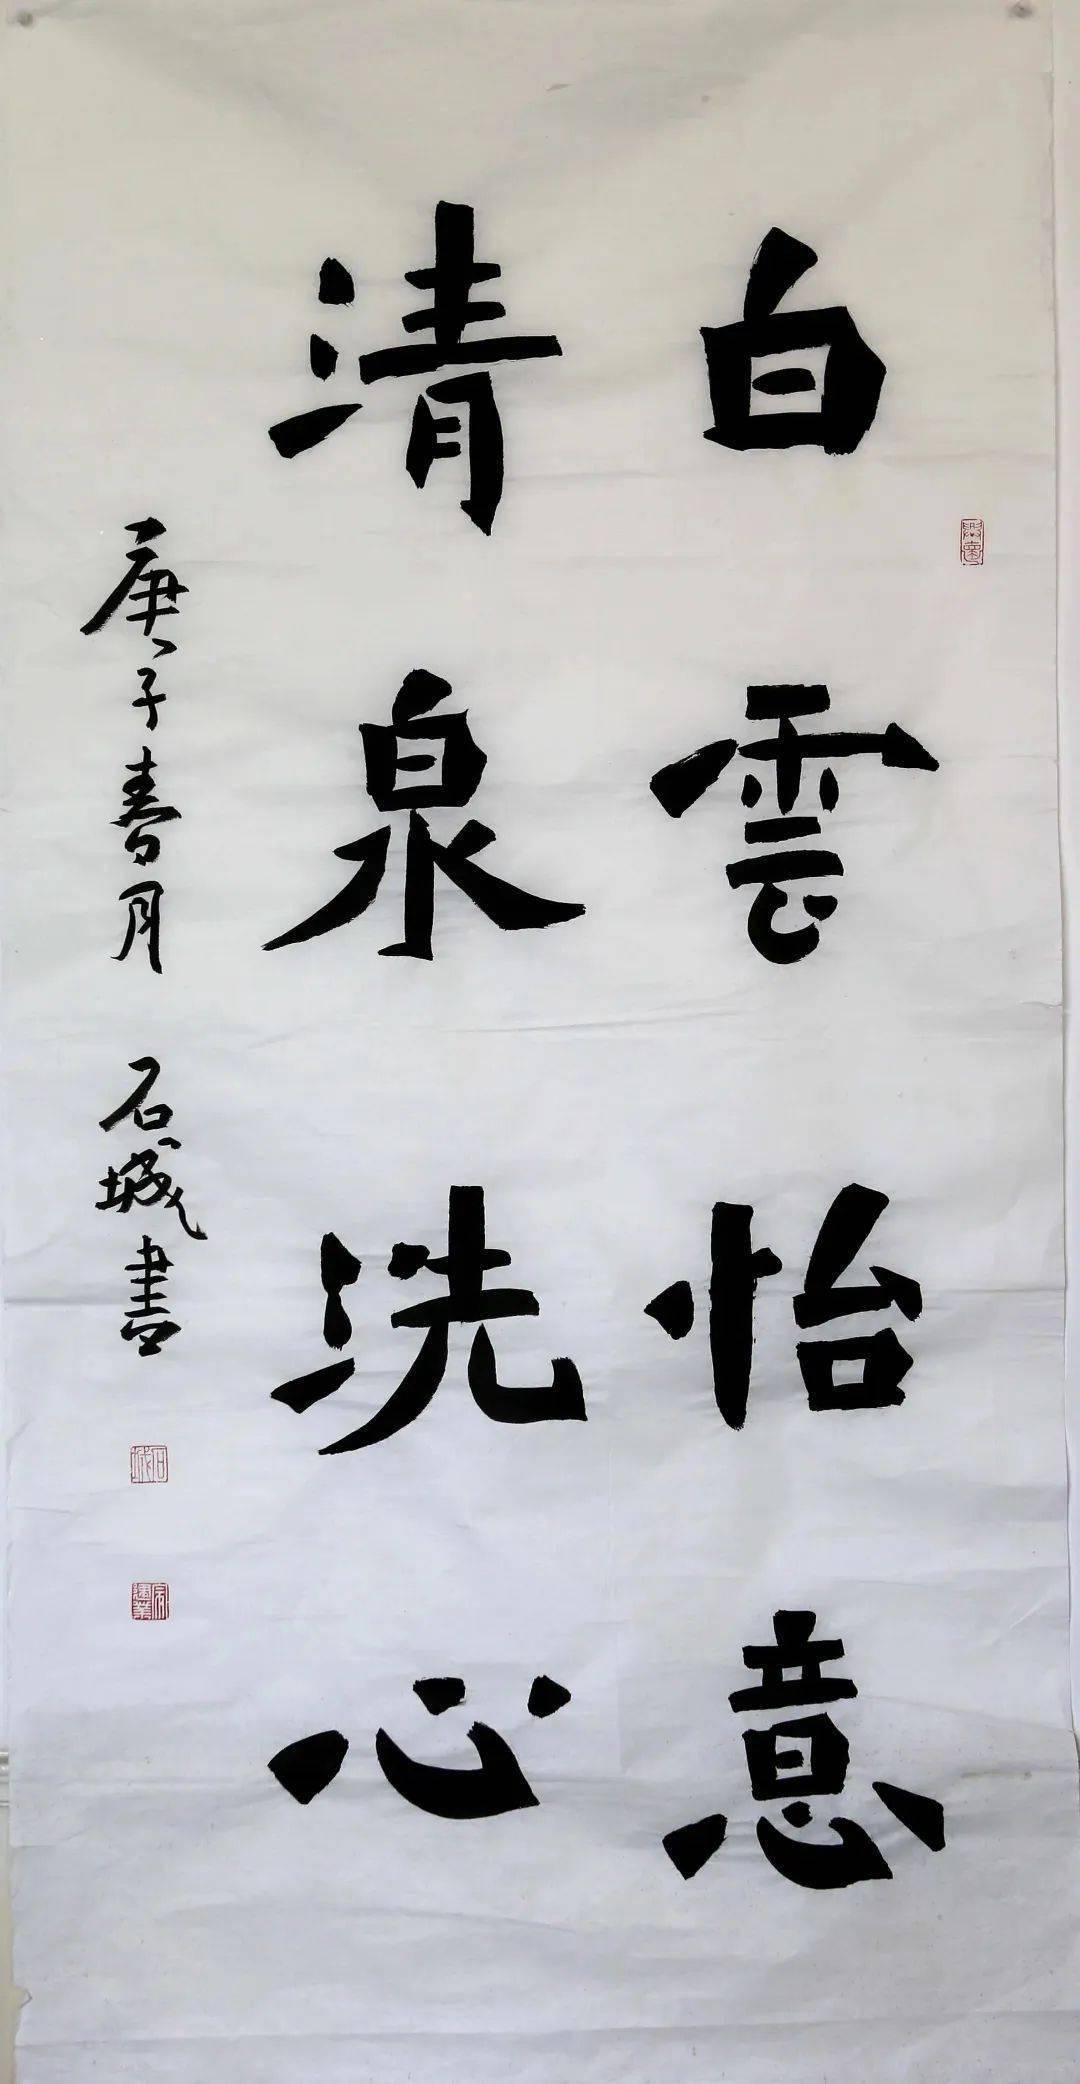 白雲怡意
清泉洗心
庚子春月 石城書
石城